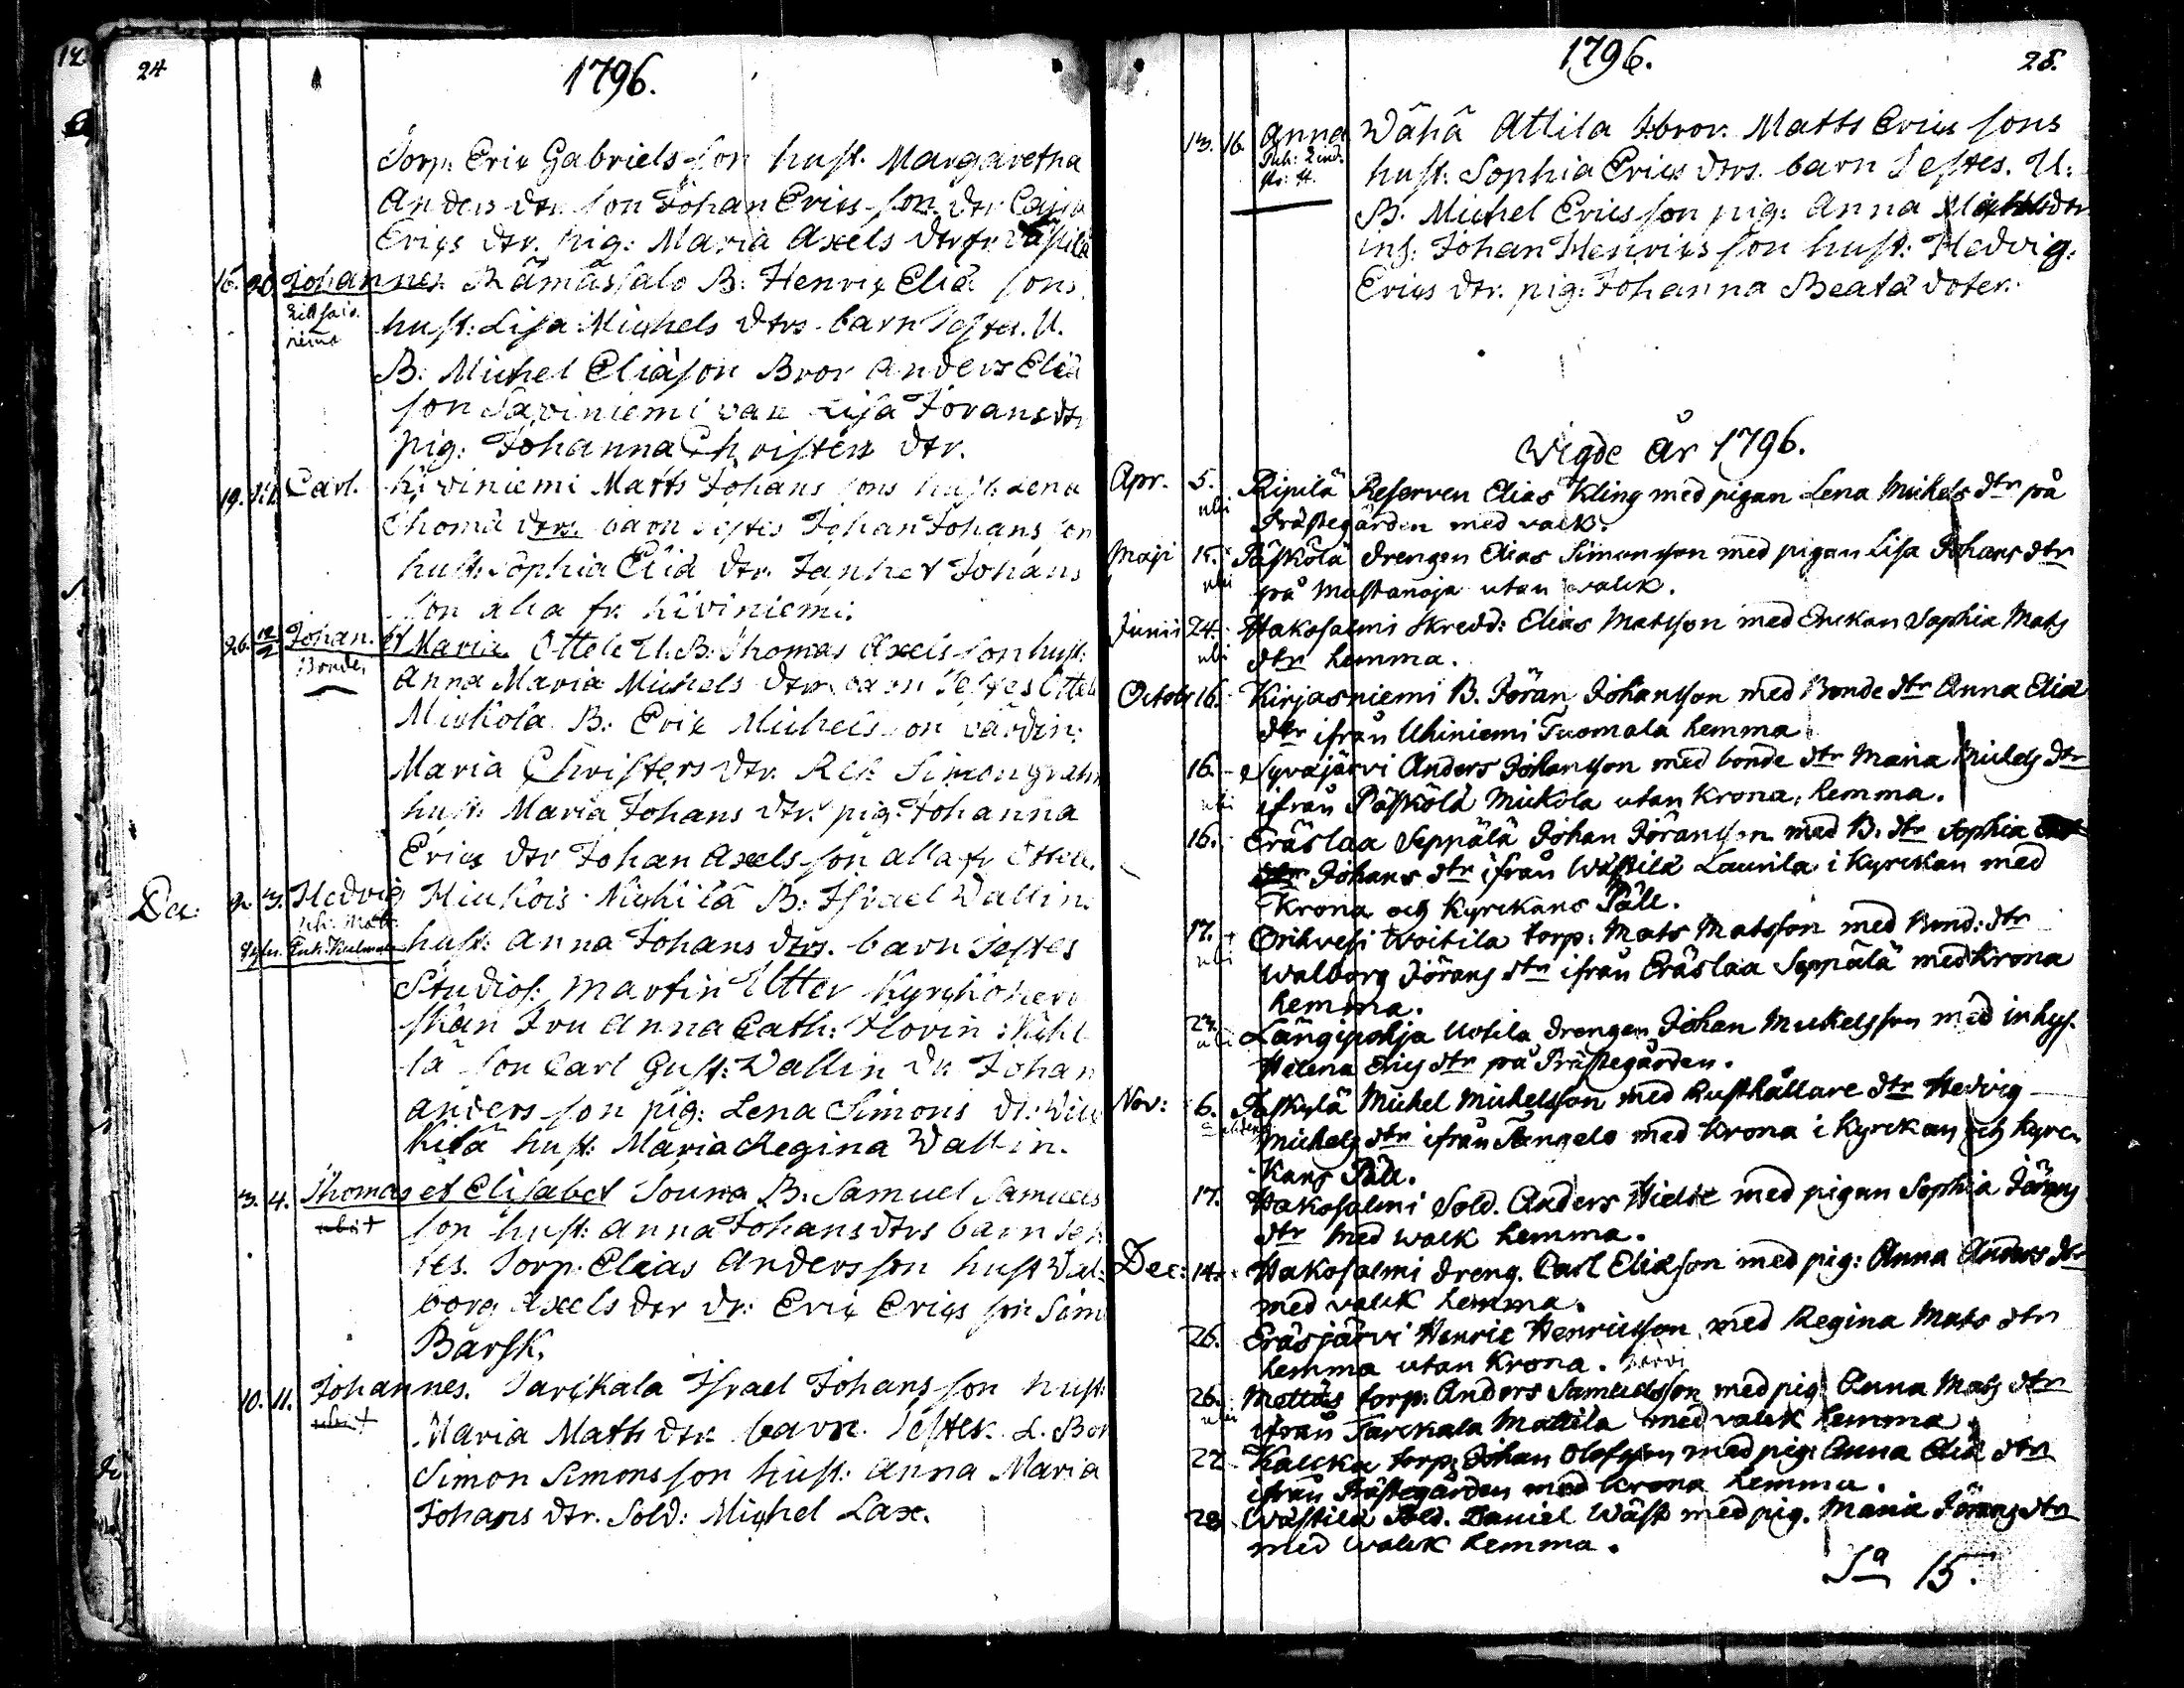 24
1796.
Torp: Eric Gabriels son hust. Margaretha
Anders dtr. son Johan Erics son. dtr Cajsa
Erics dtr. pig: Maria Axels dtr fr Wästilä
15. 20. Johannes. Rämässalo B: Henric Eliæ sons
hust: Lisa Michels dtrs. barn Testes. U.
B: Michel Eliæson Bror Anders Eliæ
son Saviniemi Lisa Jöransdtr
pig: Johanna Christers dtr.
19. Carl. Kiviniemi Matts Johans sons hust: Lena
Thomæ dtrs. barn Testes Johan Johans son
hust: Sophia Eliæ dtr. Johans
son alla fr. Kiviniemi.
26. Johan. et Maria Ottele U. B: Thomas Axels son hust:
Bonde
Anna Maria Michels dtrs barn Testes Ottele
Mickola B: Eric Michels son värdin:
Maria Christers dtr. Simon Grahn
hust: Maria Johans dtr. pig: Johanna
Erics dtr Johan Axels son alla fr Ottele.
Dec: 2. 3. Hedvig Hiukois B: Israel Wallin.
hust: Anna Johans dtrs. barn Testes
Studios: Martin Utter Kyrkoher
skan Fru Anna Cath: Florin
lä son Carl Gust: Wallin dr Johan
Anders son pig: Lena Simons dr:
kilä hust: Maria Regina Wallin.
3. 4. Thomas et Elisabet Souna B. Samuel Samuels
obiit son hust: Anna Johans dtrs barn Tes
tes. Torp. Elias Andersson hust Wal:
borg Axels dtr dr: Eric Erics son
Barsk.
10. 11. Johannes. Tarckala Israel Johans son hust:
obiit
Maria Matts dtr. barn. Testes. L. Bon
Simon Simonsson hust: Anna Maria
Johans dtr. Sold: Michel Lax.
1796.
25.
13. 16. Anna Wähä Attila Matts Erics sons
hust: Sophia Erics dtrs. barn Testes. U:
B. Michel Ericsson pig: Anna
inh: Johan Henrics son hust: Hedvig:
Erics dtr. pig: Johanna Beata doter.
Wigde år 1796.
Apr. 5. Ripilä Reserven Elias Kling med pigan Lena Michels dtr på
Prästegården med valk.
Maji 15. Päskölä drengen Elias Simonsson med pigan Lisa Johans dtr
på Mustanoja utan valck.
Junii 24. Hakosalmi Skredd: Elias Matsson med Enckan Sophia Mats
dtr hemma.
Octob 16. Kirjasniemi B. Jöran Johansson med Bonde dtr Anna Eliæ
dtr ifrån Uhiniemi Tuomala hemma
16. Syväjärvi Anders Johansson med bonde dtr Maria Michels dtr
ifrån Päskölä Mickola utan Krona, hemma.
16. Eräslaa Seppälä Johan Jöransson med B. dtr Sophia
Johans dtr ifrån Wästilä Laurila i Kyrckan med
Krona och Kyrckans Päll.
17. Orihvesi Woitila torp: Mats Matsson med Bond: dtr
Walborg Jörans dtr ifrån Eräslaa Seppälä med Krona
hemma.
23. Längipohja Uotila drengen Johan Mickelsson med inhys.
Helena Erics dtr på Prästegården.
Nov: 6. Päskylä Michel Michelsson med Rusthållare dtr Hedvig
Michels dtr ifrån med Krona i Kyrckan och Kyrc
kans Päll.
17. Hakosalmi Sold. Anders Hielte med pigan Sophia Jörans
dtr med walk hemma.
Dec: 14. Hakosalmi dreng. Carl Eliæson med pig: Anna Anders dtr
med valck hemma.
26. Eräsjärvi Henric Henricsson med Regina Mats dtr
hemma utan Krona.
26. Mettäs torp. Anders Samuelsson med pig: Anna Mats dtr
ifrån Tarckala Mattila med valck hemma
27. Kalcku torp: Johan Olofsson med pig: Anna Eliæ dtr
ifrån Prästegården med Krona hemma.
28. Wästilä Sold. Daniel Wäst med pig. Maria Jörans dtr
med walck hemma.
Sa 15.